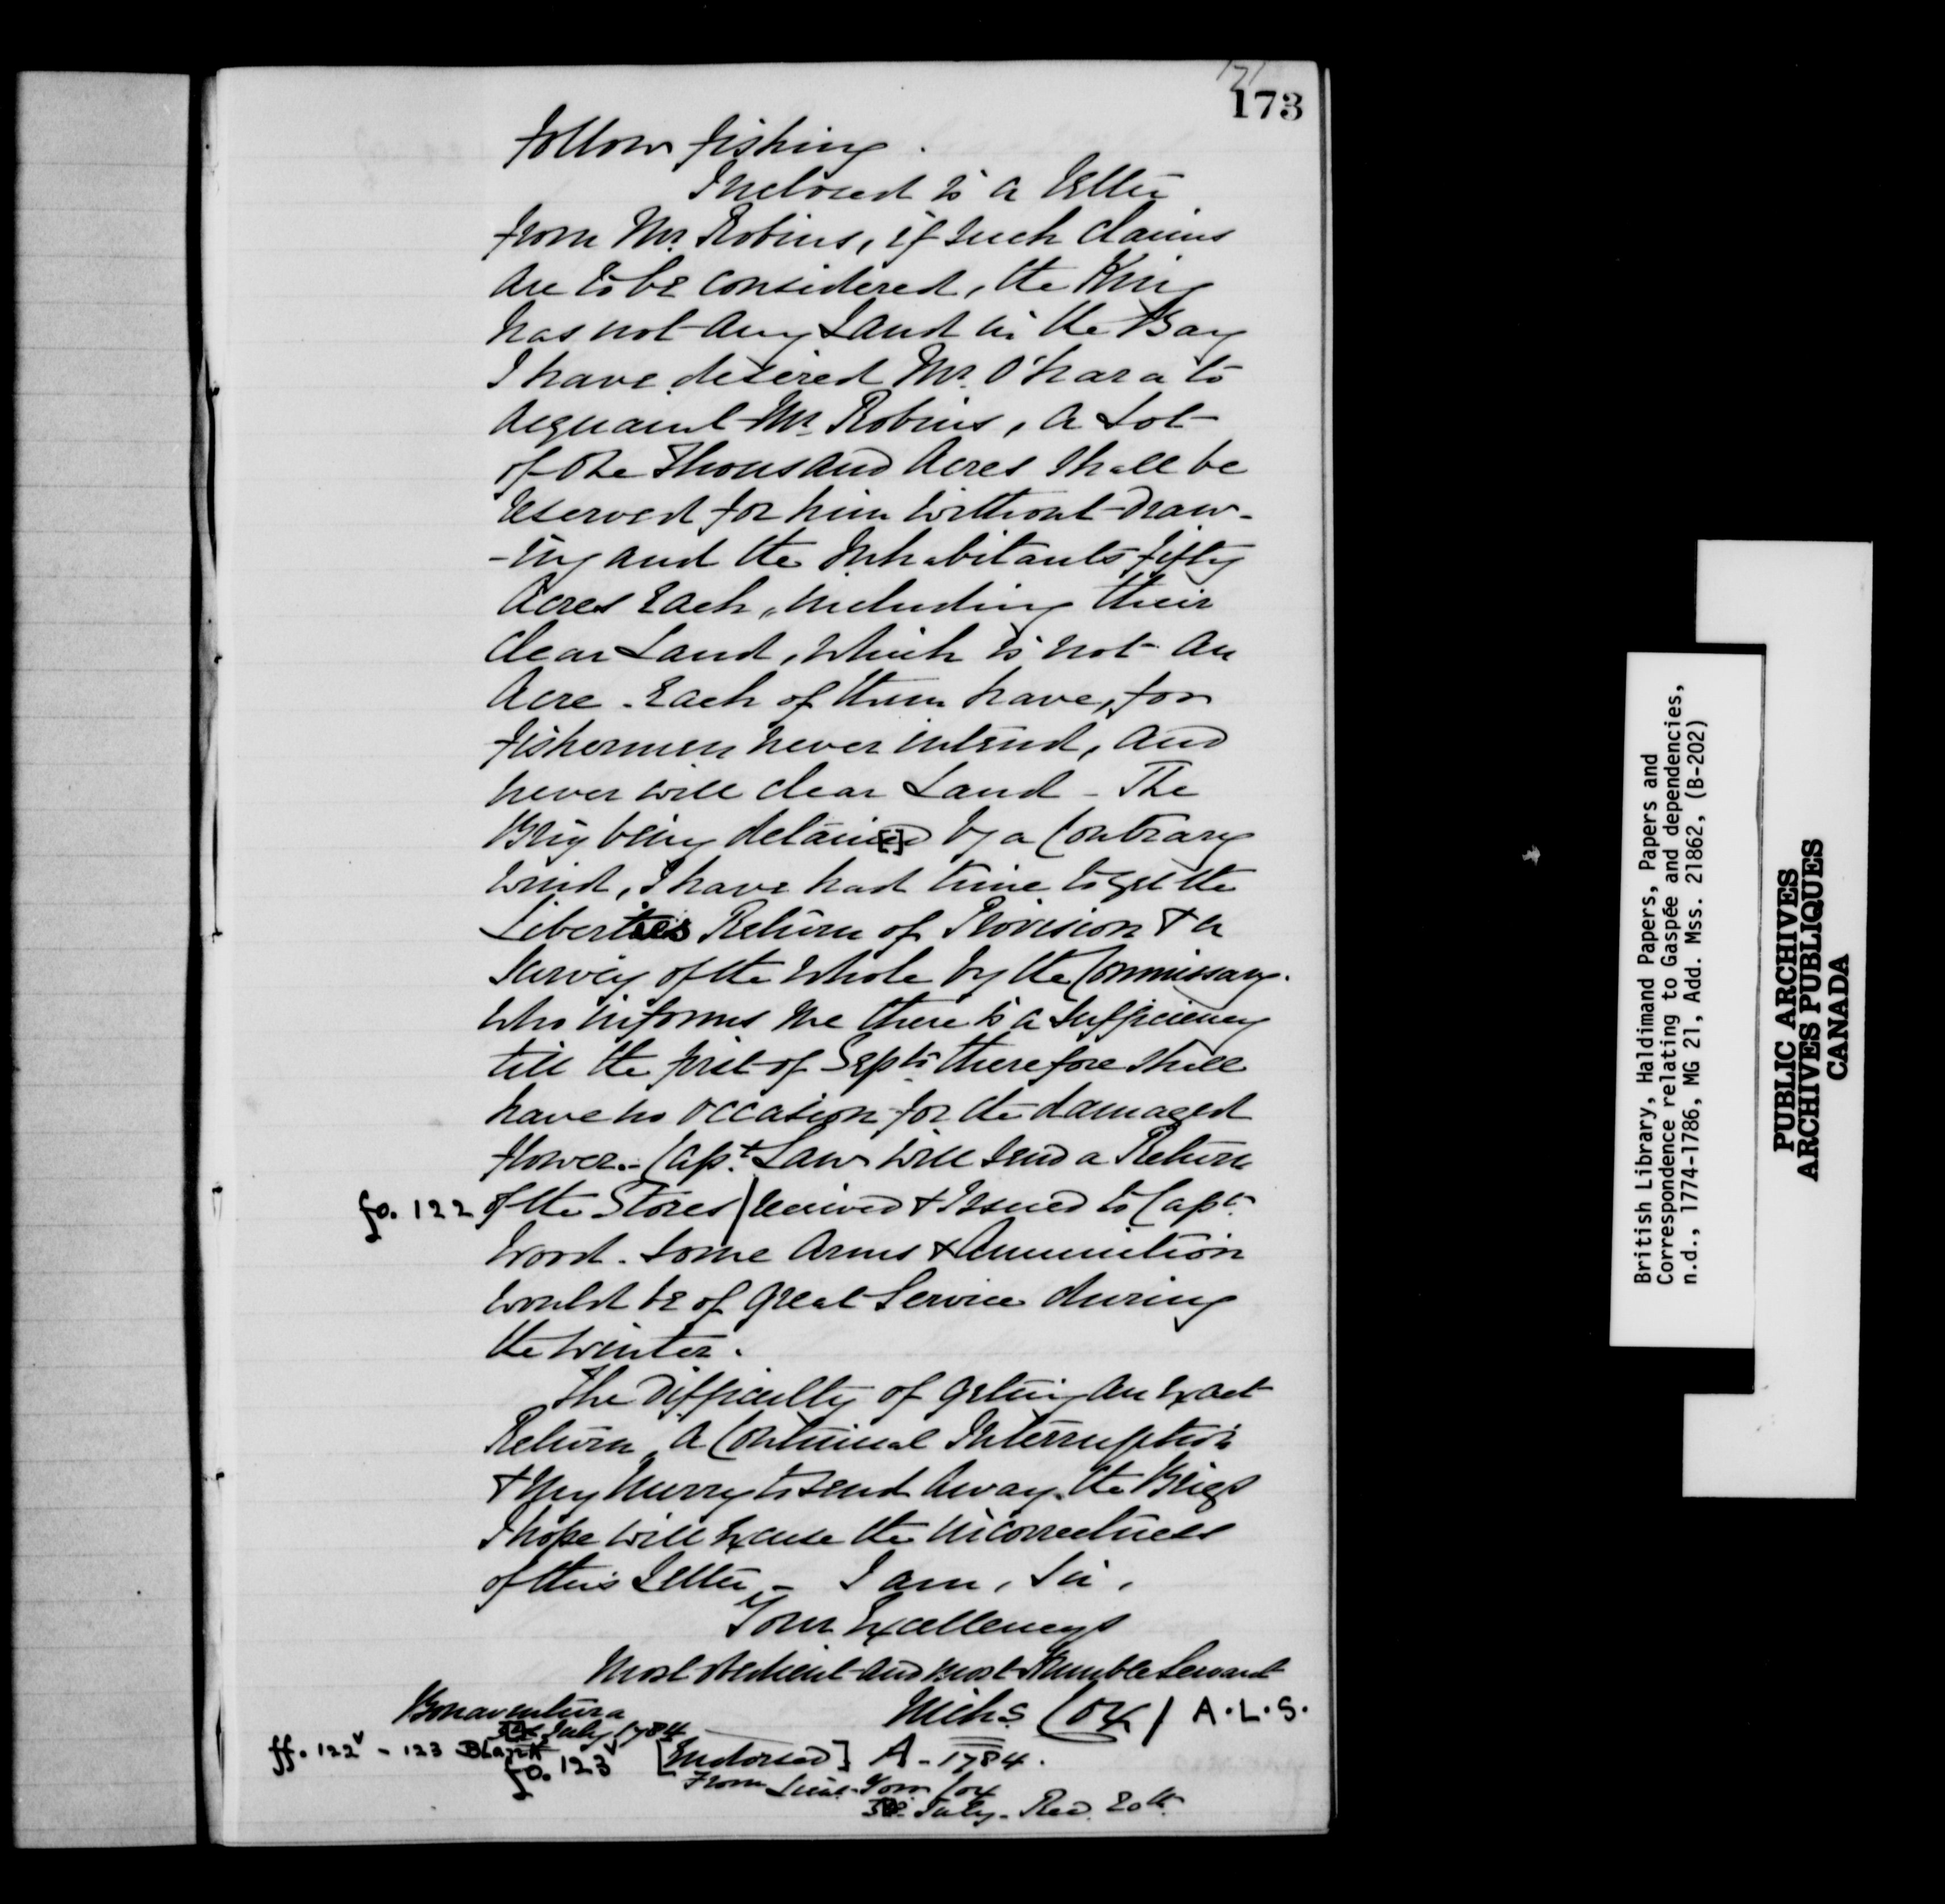 171
173
follow fishing.
Inclosed is a letter
from Mr. Robins, if such claims
are to be considered, the King
has not any Land in the Bay
I have desired Mr. O'hara to
acquaint Mr. Robins, a Lot
of One Thousand Acres shall be
reserved for him without draw-
-ing and the Inhabitants fifty
Acres Each, including their
clear Land, which is not an
Acre Each of them have, for
fishermen never intend, and
never will clear Land - The
Brig being detain[e]d by a Contrary
wind, I have had time to get the
Liberties Return of Provision & a
Survey of the whole by the Commissary.
who informs me there is a sufficiency
till the first of Septr. therefore shall
have no occasion for the damaged
flower. - Capt. Law will send a Return
fo. 122 of the Stores / received & Issued to Capt.
Wood. Some Arms & Ammunition
would be of great Service during
the winter.
The Difficulty of geting an Exact
Return, a Continual Interruption
& My Hurry to send away the Brigs
I hope will Excuse the incorrectness
of this Letter - I am, Sir,
Your Excellencys
Most obedient and most Humble Servant
Bonaventura Nichs. Cox / A.L.S.
July 1784
ff. 122v - 123 Blank
fo. 123v [Endorsed] A - 1784.
From Lieut. Govr. Cox
July - Recd. 20th.
British Library, Haldimand Papers, Papers and
Correspondence relating to Gaspée and dependencies,
n.d., 1774-1786, MG 21, Add. Mss. 21862, (B-202)
PUBLIC ARCHIVES
ARCHIVES PUBLIQUES
CANADA